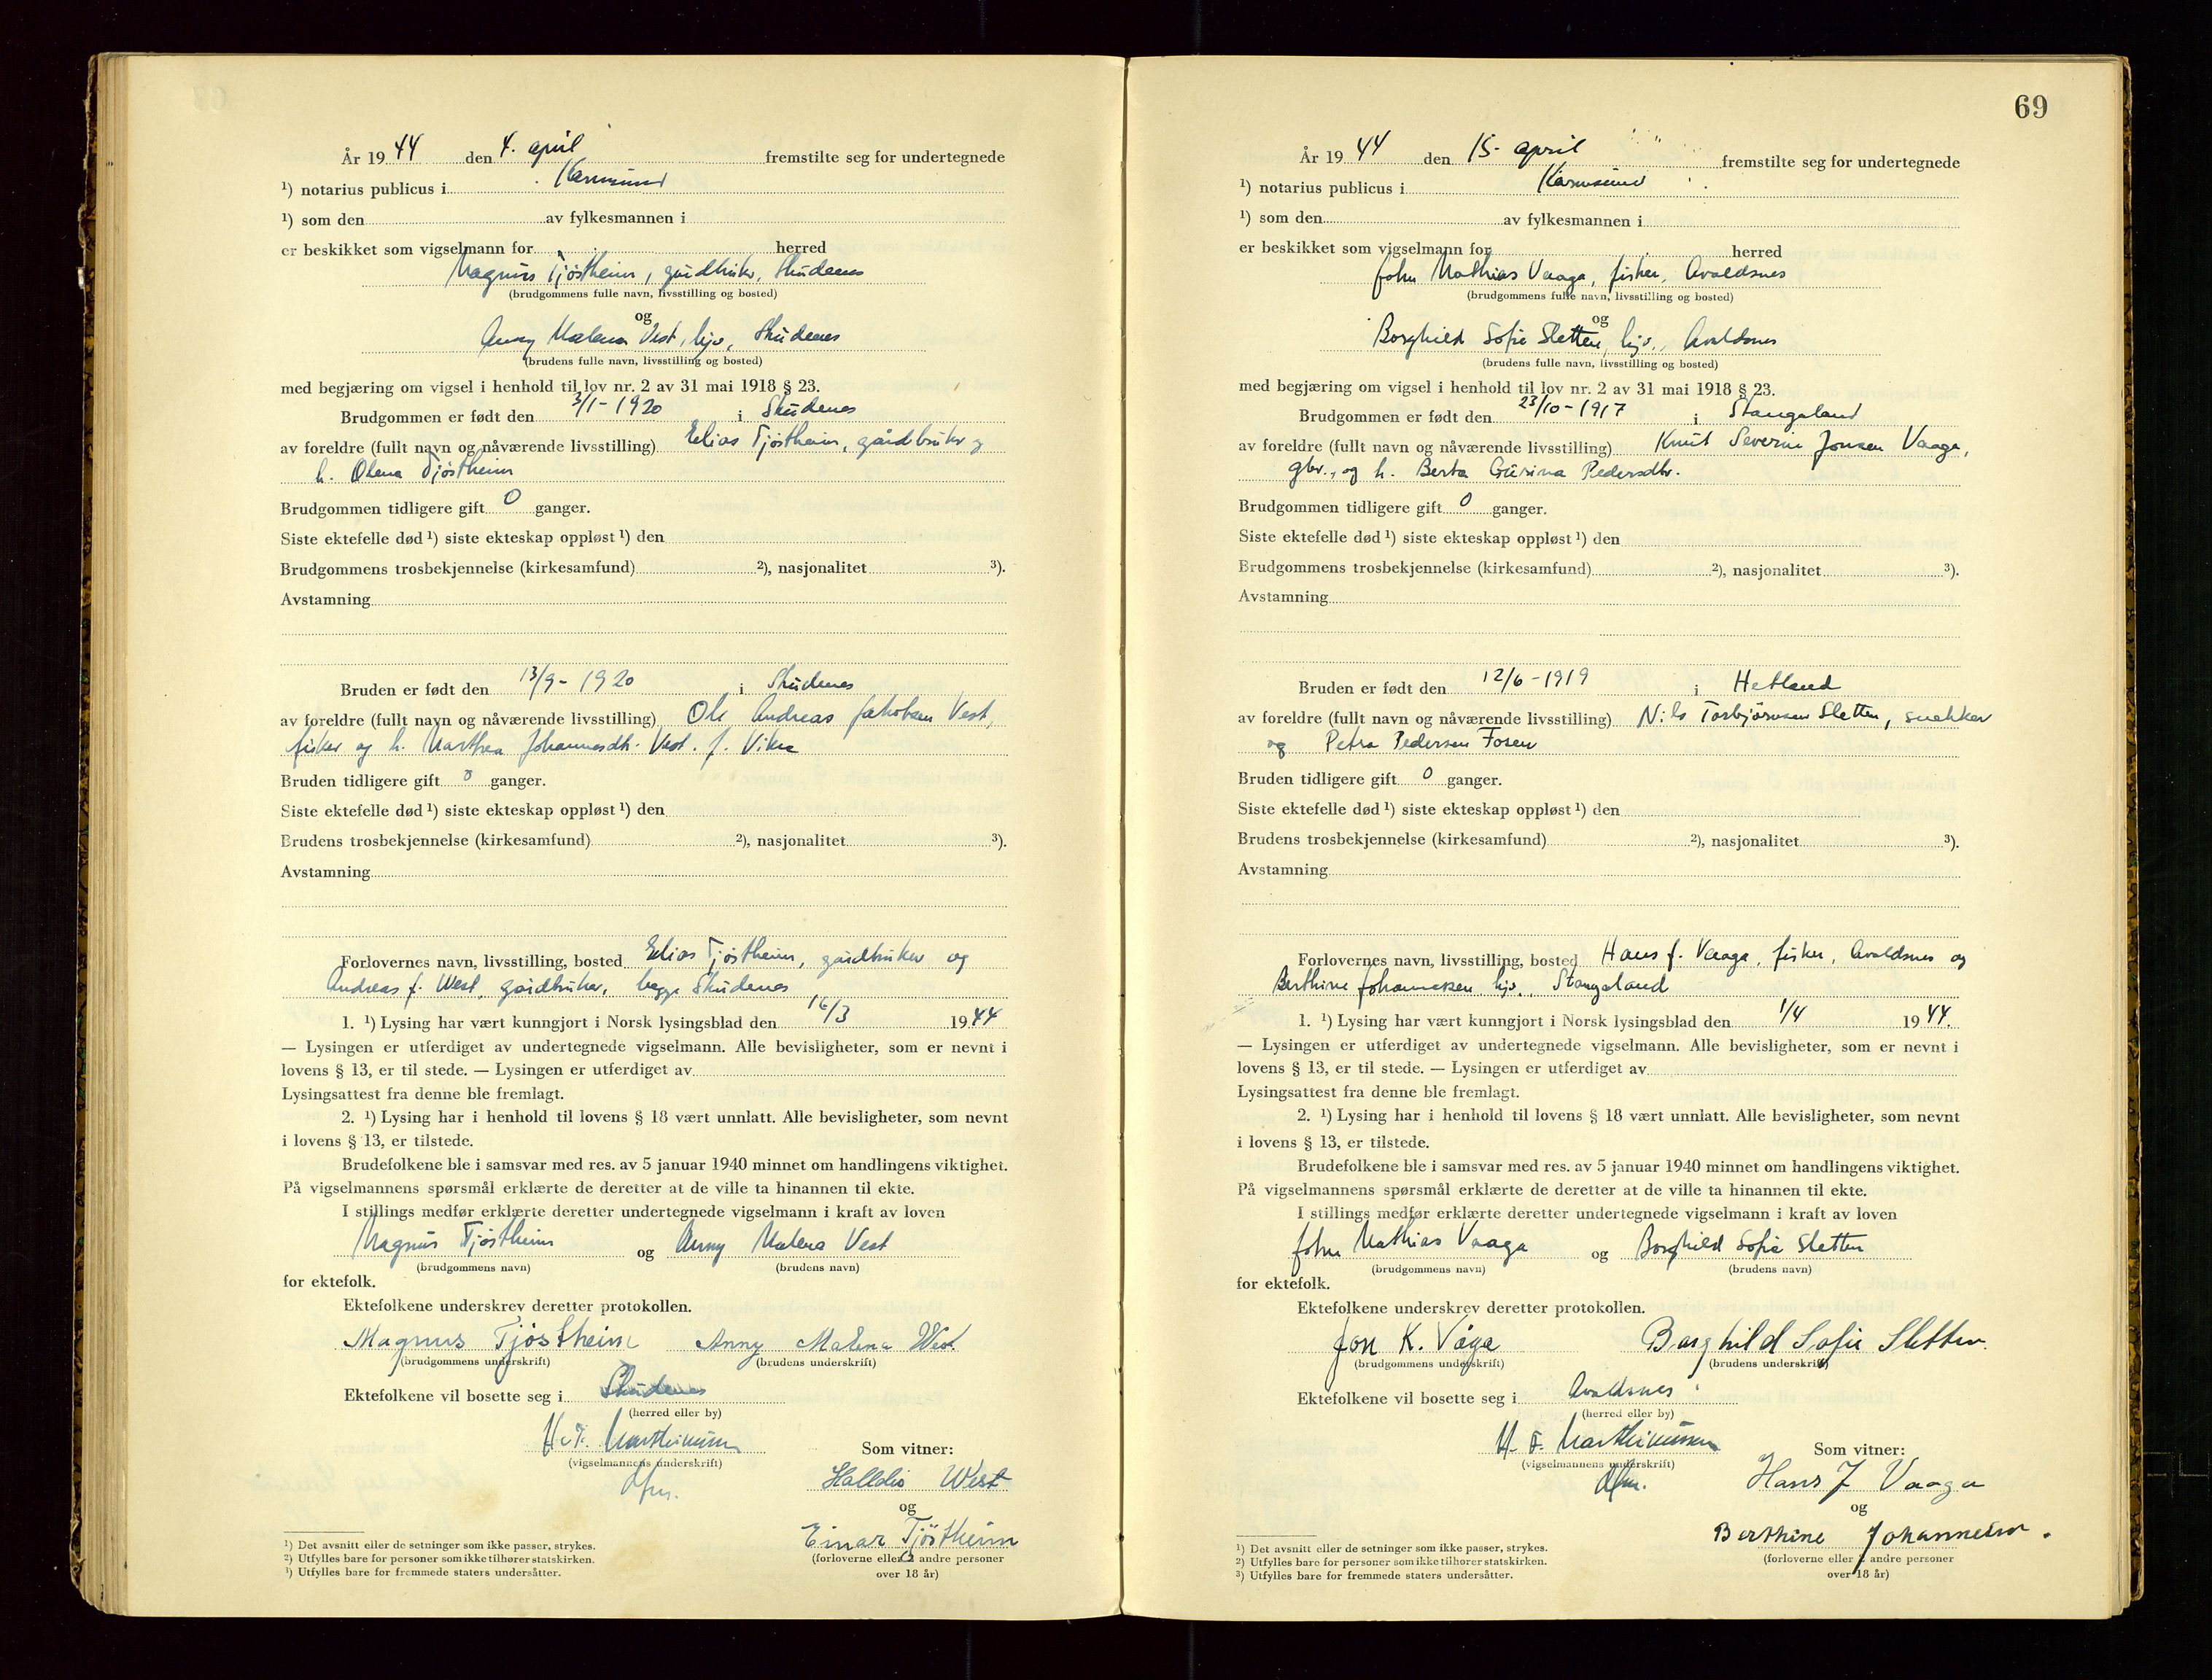 År 19 44 den 4. april fremstilte seg for undertegnede
¹) notarius publicus i Karmsund
¹) som den av fylkesmannen i
er beskikket som vigselmann for herred
Magnus Tjøstheim, gårdbruker, Skudenes
(brudgommens fulle navn, livsstilling og bosted)
og
Anny Malena Vest, hjv., Skudenes
(brudens fulle navn, livsstilling og bosted)
med begjæring om vigsel i henhold til lov nr. 2 av 31 mai 1918 § 23.
Brudgommen er født den 3/1 - 1920 i Skudenes
av foreldre (fullt navn og nåværende livsstilling) Elias Tjøstheim, gårdbruker og
h. Olena Tjøstheim
Brudgommen tidligere gift 0 ganger.
Siste ektefelle død ¹) siste ekteskap oppløst ¹) den
Brudgommens trosbekjennelse (kirkesamfund) ²), nasjonalitet ³).
Avstamning
Bruden er født den 13/9 - 1920 i Skudenes
av foreldre (fullt navn og nåværende livsstilling) Ole Andreas Jakobsen Vest,
fisker og h. Marthea Johannesdtr. Vest. f. Vikra
Bruden tidligere gift 0 ganger.
Siste ektefelle død ¹) siste ekteskap oppløst ¹) den
Brudens trosbekjennelse (kirkesamfund) ²), nasjonalitet ³).
Avstamning
Forlovernes navn, livsstilling, bosted Elias Tjøstheim, gårdbruker og
Andreas J. West, gårdbruker, begge Skudenes
1. ¹) Lysing har vært kunngjort i Norsk lysingsblad den 16/3 19 44
— Lysingen er utferdiget av undertegnede vigselmann. Alle bevisligheter, som er nevnt i
lovens § 13, er til stede. — Lysingen er utferdiget av
Lysingsattest fra denne ble fremlagt.
2. ¹) Lysing har i henhold til lovens § 18 vært unnlatt. Alle bevisligheter, som nevnt
i lovens § 13, er tilstede.
Brudefolkene ble i samsvar med res. av 5 januar 1940 minnet om handlingens viktighet.
På vigselmannens spørsmål erklærte de deretter at de ville ta hinannen til ekte.
I stillings medfør erklærte deretter undertegnede vigselmann i kraft av loven
Magnus Tjøstheim og Anny Malena Vest
(brudgommens navn) (brudens navn)
for ektefolk.
Ektefolkene underskrev deretter protokollen.
Magnus Tjøstheim Anny Malena West.
(brudgommens underskrift) (brudens underskrift)
Ektefolkene vil bosette seg i Skudenes
(herred eller by)
M. F. Marthinussen
(vigselmannens underskrift)
Som vitner:
Halldis West
og
Einar Tjöstheim
(forloverne eller 2 andre personer
over 18 år)
¹) Det avsnitt eller de setninger som ikke passer, strykes.
²) Utfylles bare for personer som ikke tilhører statskirken.
³) Utfylles bare for fremmede staters undersåtter.
69
År 19 44 den 15. april fremstilte seg for undertegnede
¹) notarius publicus i Karmsund
¹) som den av fylkesmannen i
er beskikket som vigselmann for herred
John Mathias Vaaga, fisker, Avaldsnes
(brudgommens fulle navn, livsstilling og bosted)
og
Borghild Sofie Sletten, hjv., Avaldsnes
(brudens fulle navn, livsstilling og bosted)
med begjæring om vigsel i henhold til lov nr. 2 av 31 mai 1918 § 23.
Brudgommen er født den 23/10 - 1917 i Stangaland
av foreldre (fullt navn og nåværende livsstilling) Knut Severin Jonsen Vaaga,
gbr., og h. Berta Gurina Pedersdtr.
Brudgommen tidligere gift 0 ganger.
Siste ektefelle død ¹) siste ekteskap oppløst ¹) den
Brudgommens trosbekjennelse (kirkesamfund) ²), nasjonalitet ³).
Avstamning
Bruden er født den 12/6 - 1919 i Hetland
av foreldre (fullt navn og nåværende livsstilling) Nils Torbjørnsen Sletten, snekker
og Petra Pedersen Fosen
Bruden tidligere gift 0 ganger.
Siste ektefelle død ¹) siste ekteskap oppløst ¹) den
Brudens trosbekjennelse (kirkesamfund) ²), nasjonalitet ³).
Avstamning
Forlovernes navn, livsstilling, bosted Hans J. Vaaga, fisker, Avaldsnes og
Berthine Johannesen, hjv., Stangaland
1. ¹) Lysing har vært kunngjort i Norsk lysingsblad den 1/4 19 44.
— Lysingen er utferdiget av undertegnede vigselmann. Alle bevisligheter, som er nevnt i
lovens § 13, er til stede. — Lysingen er utferdiget av
Lysingsattest fra denne ble fremlagt.
2. ¹) Lysing har i henhold til lovens § 18 vært unnlatt. Alle bevisligheter, som nevnt
i lovens § 13, er tilstede.
Brudefolkene ble i samsvar med res. av 5 januar 1940 minnet om handlingens viktighet.
På vigselmannens spørsmål erklærte de deretter at de ville ta hinannen til ekte.
I stillings medfør erklærte deretter undertegnede vigselmann i kraft av loven
John Mathias Vaaga og Borghild Sofie Sletten
(brudgommens navn) (brudens navn)
for ektefolk.
Ektefolkene underskrev deretter protokollen.
Jon K. Våga Borghild Sofie Sletten.
(brudgommens underskrift) (brudens underskrift)
Ektefolkene vil bosette seg i Avaldsnes
(herred eller by)
M. F. Marthinussen
(vigselmannens underskrift)
Som vitner:
Hans J Vaaga
og
Berthine Johannesen.
(forloverne eller 2 andre personer
over 18 år)
¹) Det avsnitt eller de setninger som ikke passer, strykes.
²) Utfylles bare for personer som ikke tilhører statskirken.
³) Utfylles bare for fremmede staters undersåtter.